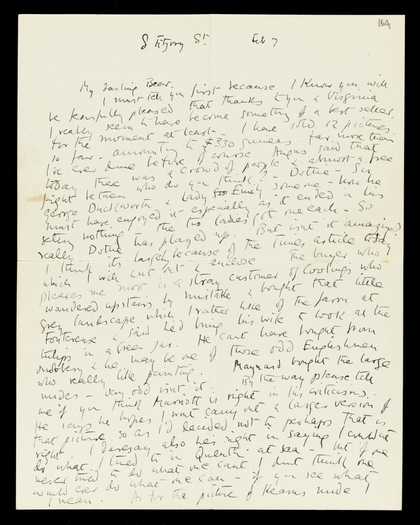 8 Fitzroy St. Feb 7
My Darling Bear.
I must tell you first because I know you will
be fearfully pleased that thanks to you & Virginia
I really seem to have become something of a best seller.
for the moment at least. I have sold 12 pictures
so far - amounting to £330 guineas far more than
I've ever done before of course Angus said that
today there was a crowd of people & almost a free
fight between who do you think? - Dottie - Sir
George Duckworth & Lady someone - how he
must have enjoyed it especially as it ended in his
getting nothing & the two ladies got one each - So
really Dottie has played up. But isn't it amazing?
I think its largely because of the Times article today
which I will cut out & enclose The buyer who
pleases me most is a stray customer of Cooling's who
wandered upstairs by mistake & bought that little
grey landscape which I rather like of the farm at
Fontcreuse & said he'd bring his wife to look at the
tulips in a green jar. He can't have bought from
snobbery & he may be one of those odd Englishmen
who really like painting. Maynard bought the large
nudes - very odd isn't it. By the way please tell
me if you think Marriott is right in his criticisms.
He says he hopes I won't carry out a larger version of
that picture so as I'd decided not to perhaps that is
right I daresay also he's right in saying I couldn't
do what I tried to in Quentin at sea - but if one
never tried to do what one can't I don't think one
would ever do what one can - if you see what
I mean. As for the picture of nude I